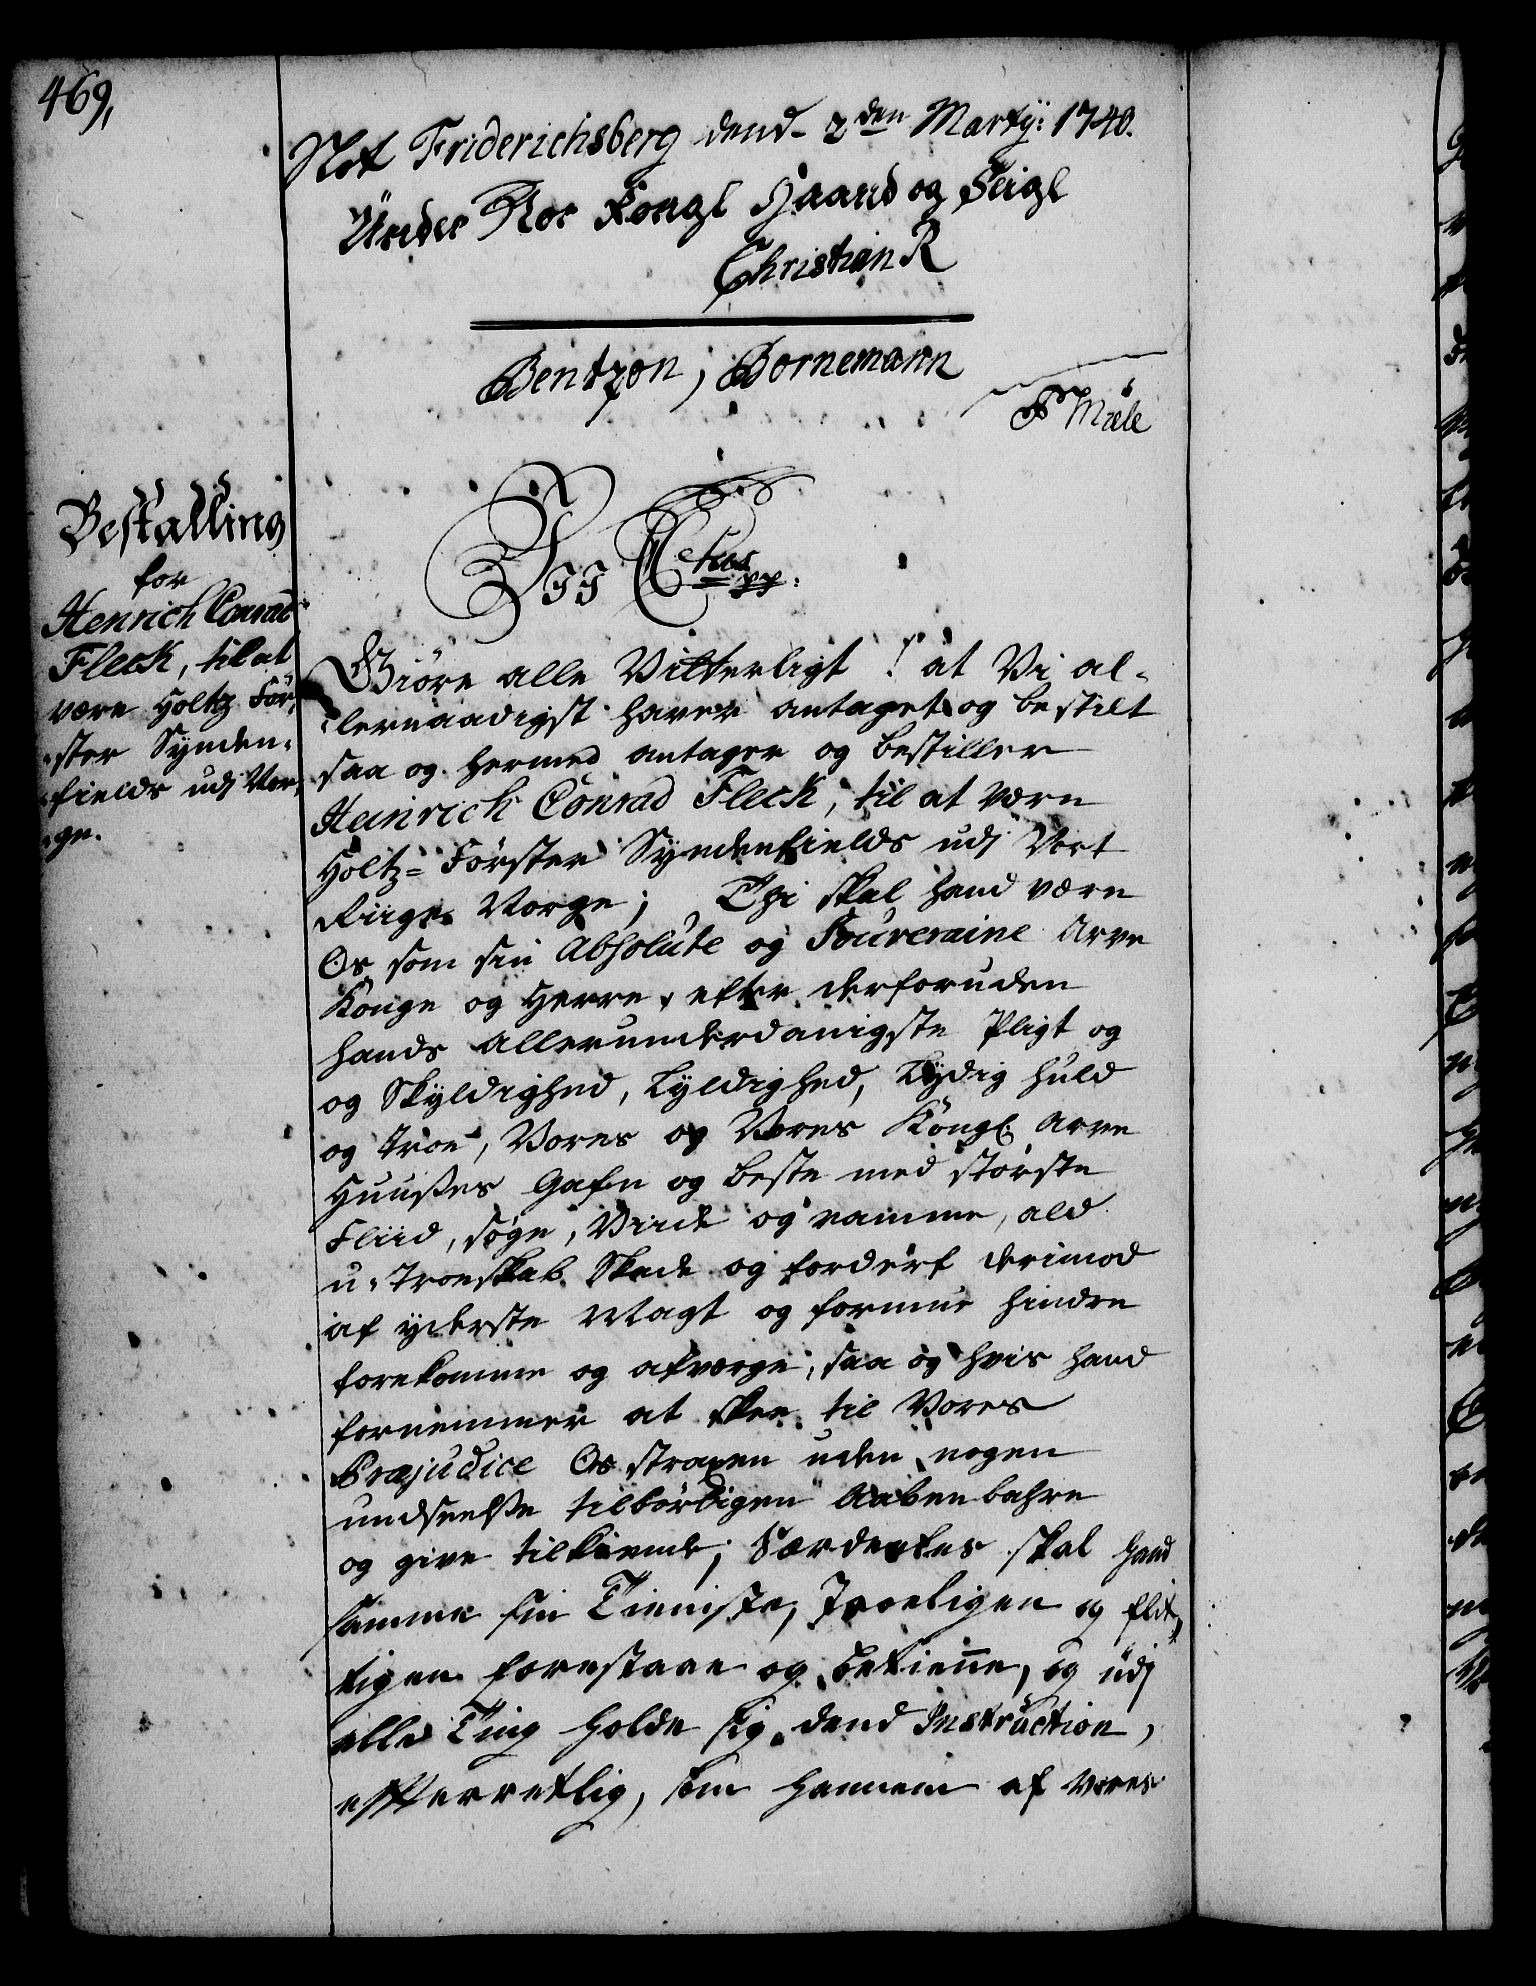 469,
Slot Friderichsberg dend 2den Martÿ: 1740.
Ünder Vor Kongl Haand og Seigl
Christian R
Bentzon, Bornemann
P Mæle
Bestalling
for
Henrich Conrad
Fleck, til at
være Holtz För,
ster Synden,
fields udj Nor,
ge.
Vii CHus pp:
Giöre alle Vitterligt! at Vi al-
lernaadigst haver antaget og bestilt
saa og hermed antager og bestiller
Heinrich Conrad Fleck, til at være
Holtz-Förster Syndenfields udj Vort
Riige Norge; Thi skal hand være
Os som sin Absolute og Souveraine Arve
Konge og Herre, efter derforuden
hands allerunderdanigste Pligt og
og Skyldighed, Lyldighed, Lydig huld
og troe, Vores og Vores Kongl: Arve
Huuses Gafn og beste med störste
Fliid, söge, Viide og ramme, ald
u-troeskab Skade og forderf derimod
af yderste Magt og formue hindre
forekomme og afværge, saa og hvis hand
fornemmer at skee til Vores
Præjudice Os straxen uden nogen
undseelse tilbörligen aabenbahre
og give tilkiende; Særdeeles skal hand
samme sin Tieniste, troeligen og flit,
tigen forestaae og betienne, og udj
alle Ting holde sig dend Instruction,
effterretlig, som hannem af Vores